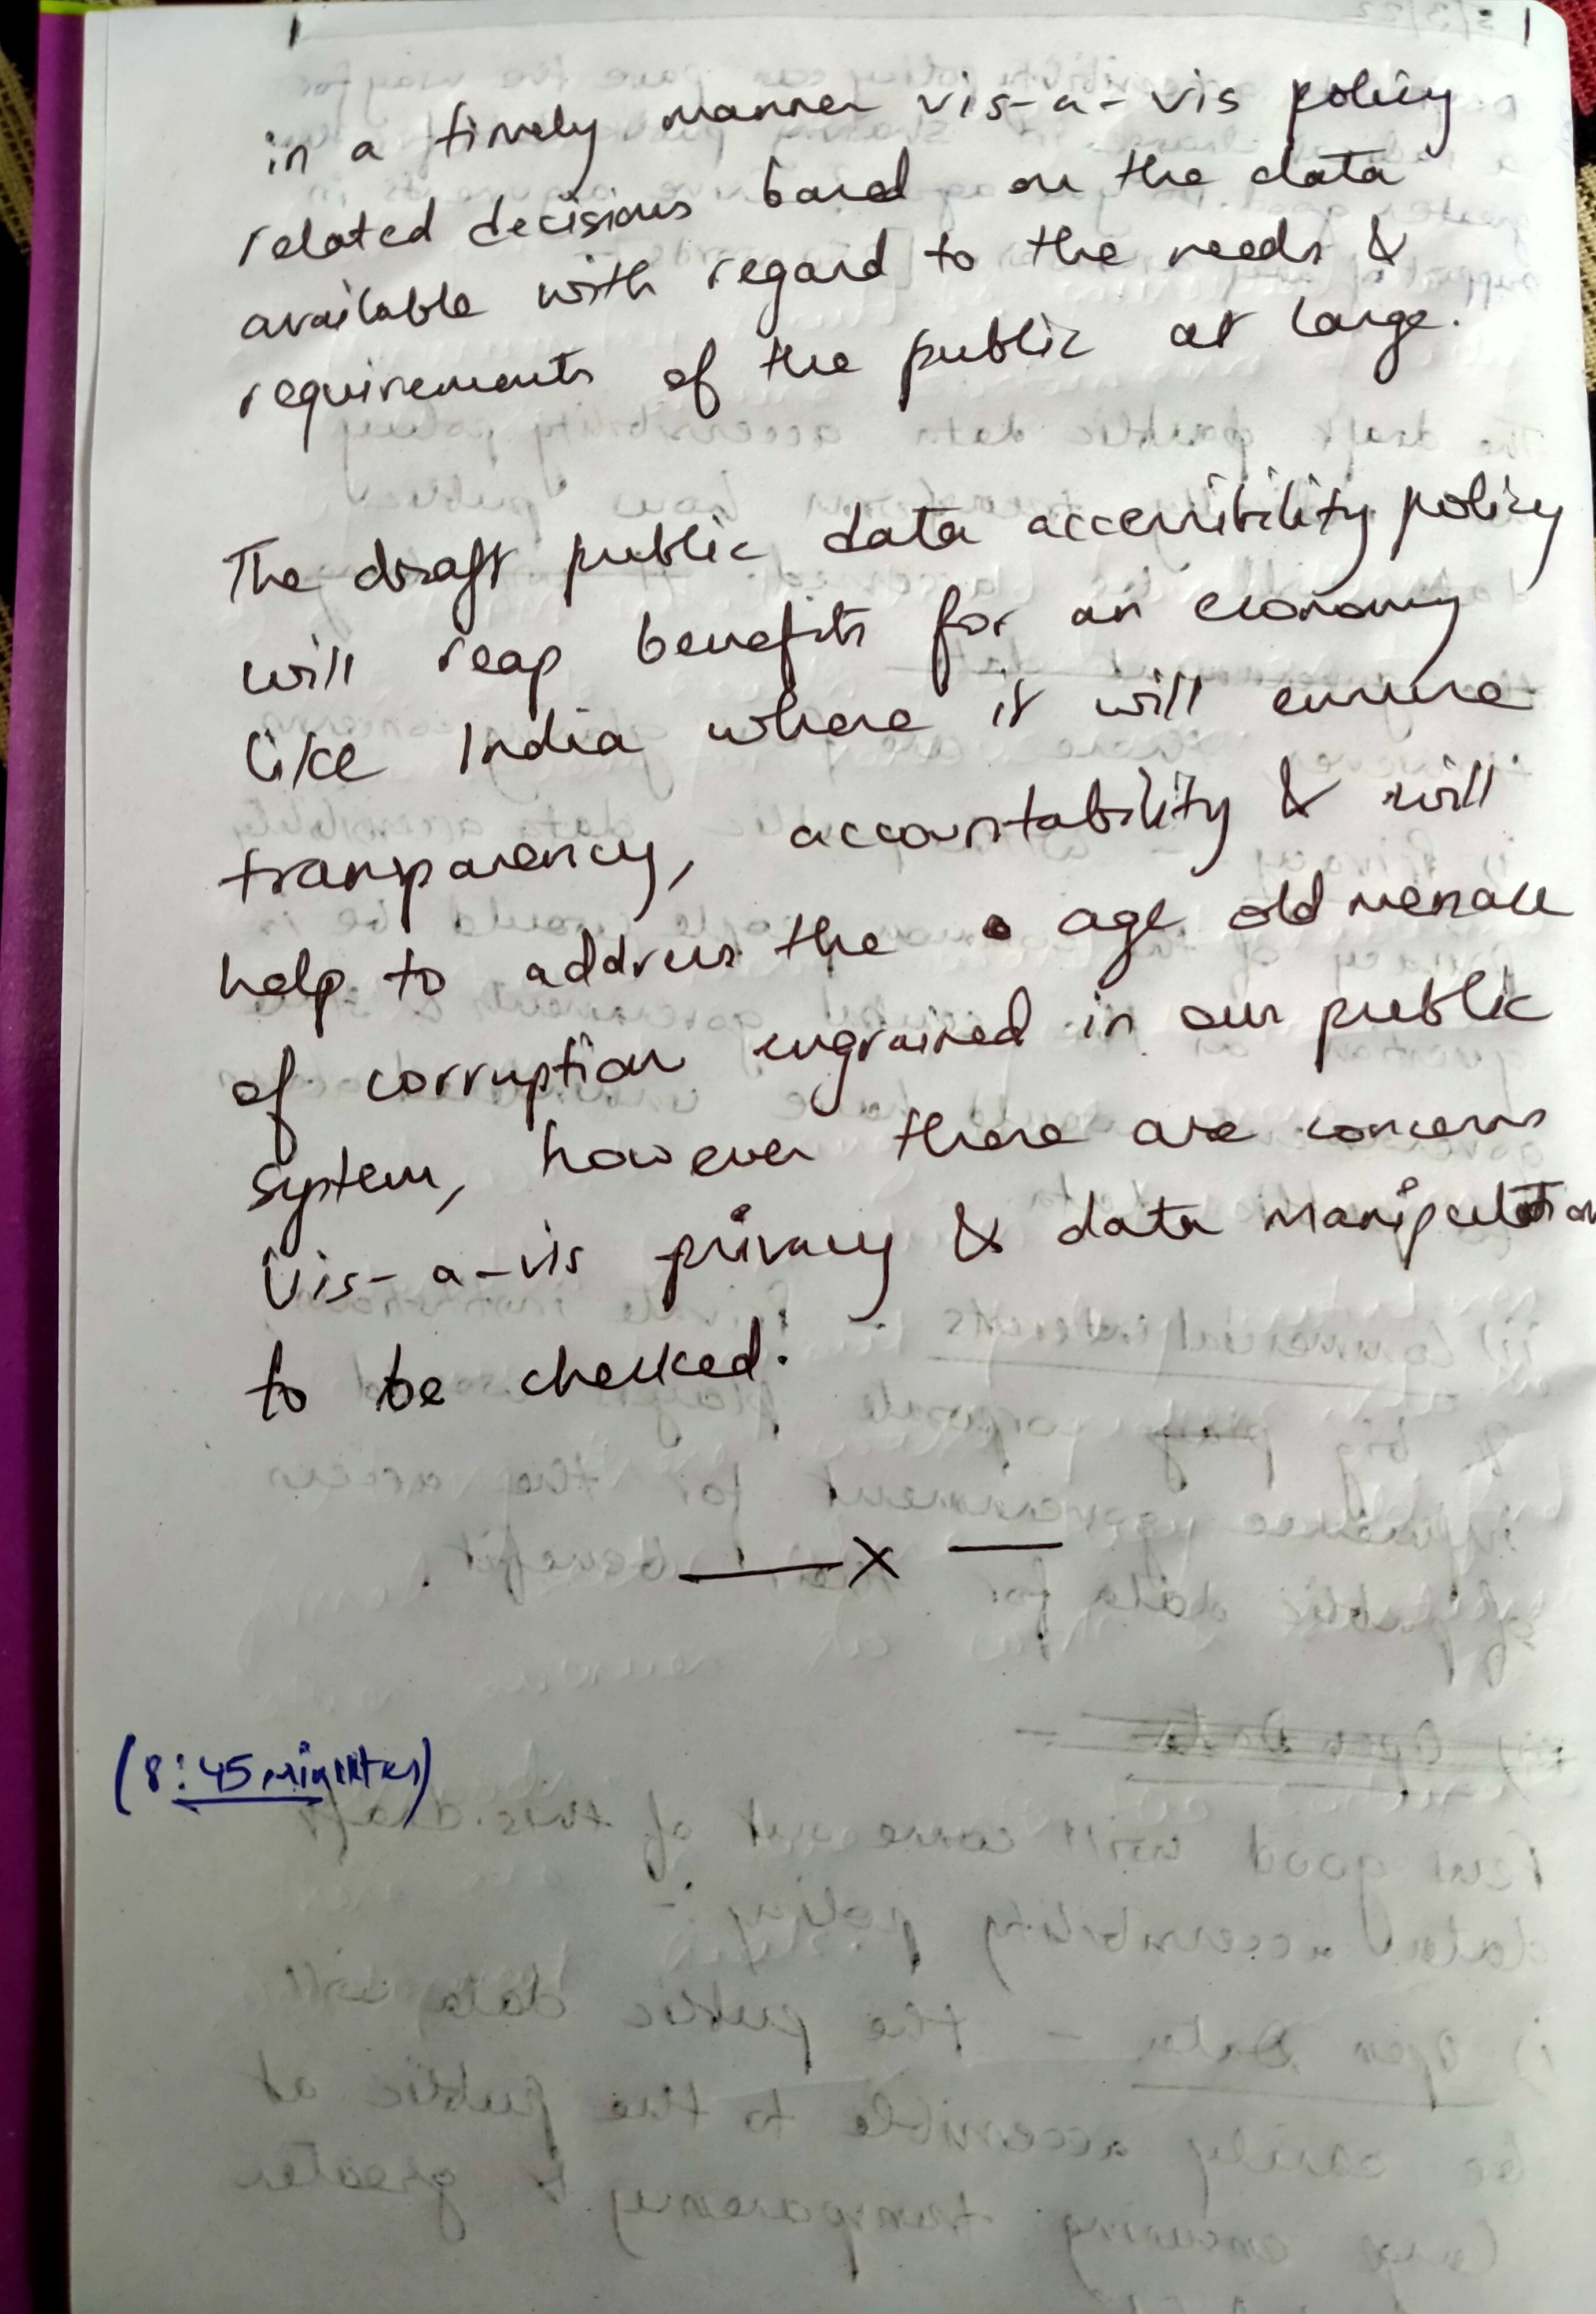 in a timely manner vis-a-vis policy
related decisions based on the data
available with regard to the needs &
requirements of the public at large.
The draft public data accessibility policy
will reap benefits for an economy
like India where it will ensure
transparency, accountability & will
help to address the age old menace
of corruption engrained in our public
system, however there are concerns
vis-a-vis privacy & data manipulation
to be checked.
— X —
(8:45 minutes)